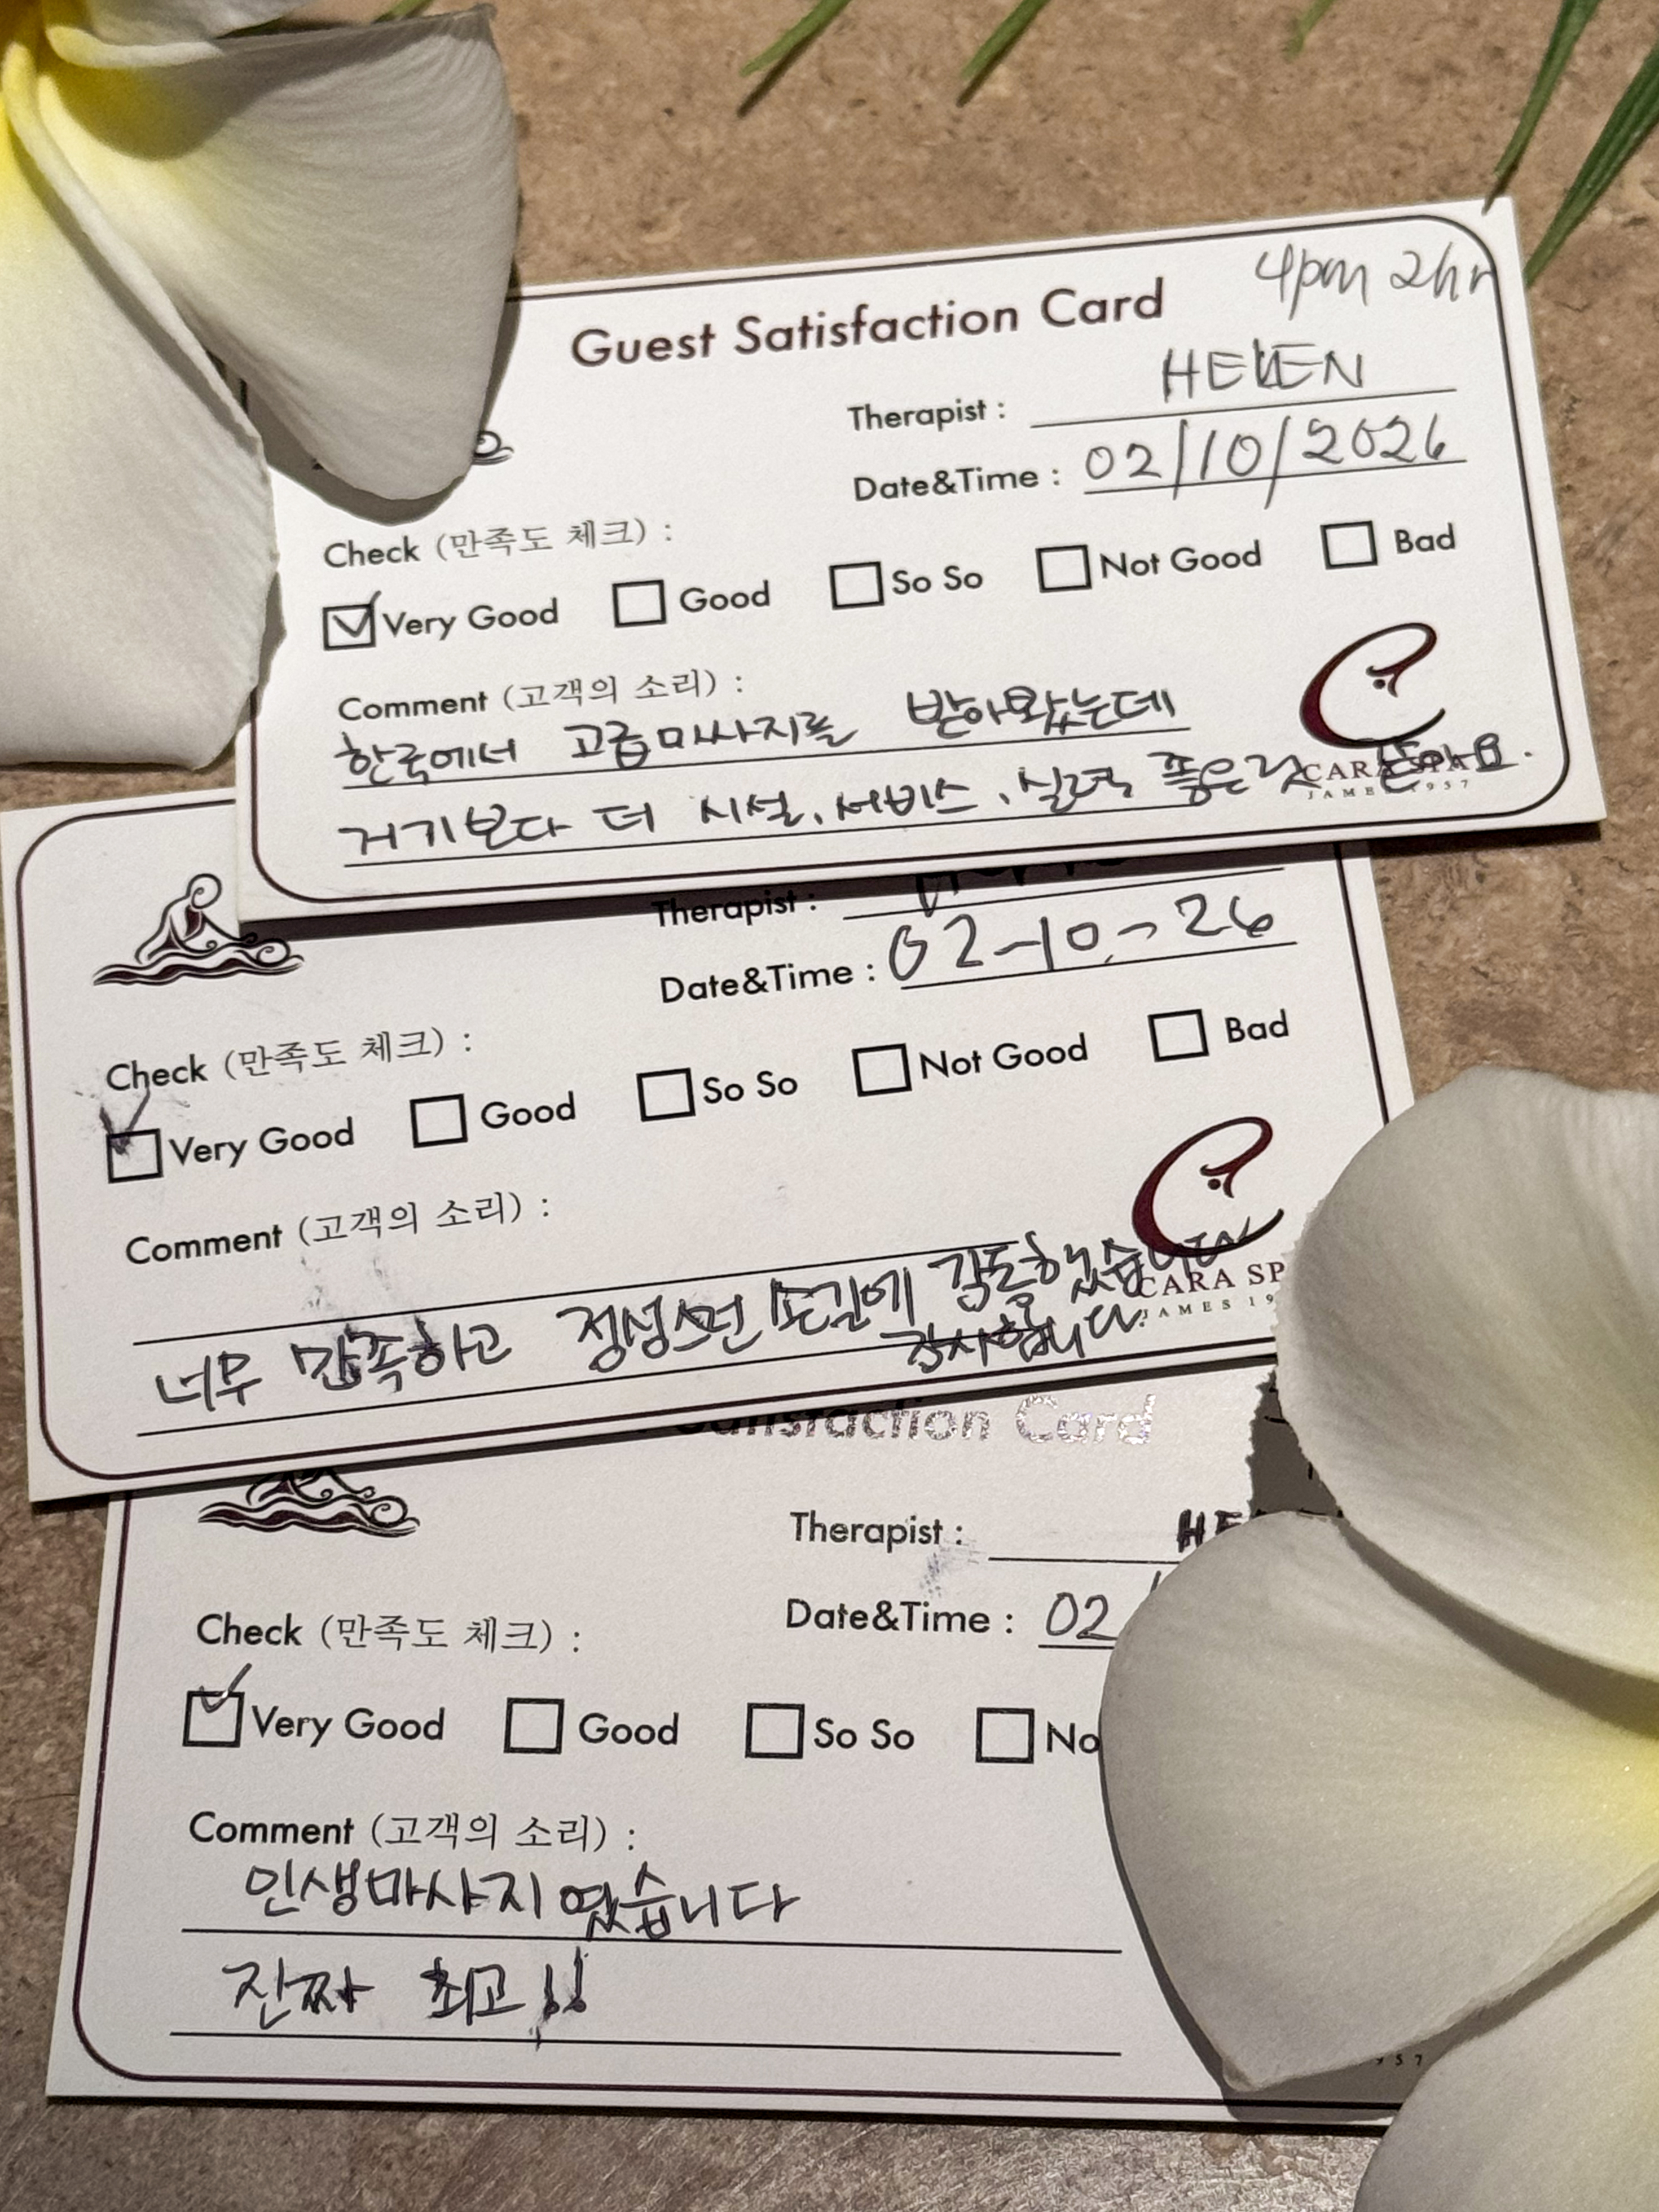 4pm 2hr
Guest Satisfaction Card
Therapist : HELEN
Date&Time : 02/10/2026
Check (만족도 체크) :
Very Good Good So So Not Good Bad
Comment (고객의 소리) :
한국에서 고급미사지를 받아왔는데
거기보다 더 시설, 서비스, 실력 좋은것 같아요.
CARA SPA
JAMES 1957
Therapist :
Date&Time : 02-10-26
Check (만족도 체크) :
Very Good Good So So Not Good Bad
Comment (고객의 소리) :
너무 만족하고 정성스런 손길에 감동했습니다
감사합니다.
CARA SP
JAMES 19
Satisfaction Card
Therapist : HE
Date&Time : 02
Check (만족도 체크) :
Very Good Good So So No
Comment (고객의 소리) :
인생마사지였습니다
진짜 최고!!
957